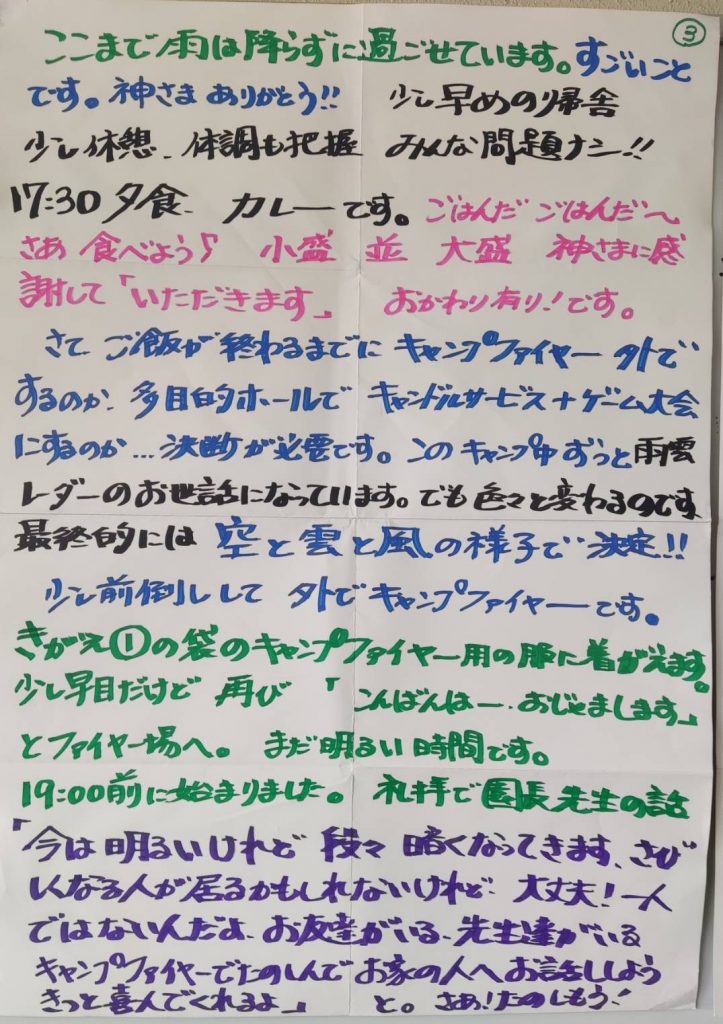 ③
ここまで雨は降らずに過ごせています。すごいこと
です。神さまありがとう!! 少し早めの帰舎
少し休憩、体調も把握 みんな問題ナシ!!
17:30 夕食、カレーです。ごはんだ ごはんだ〜
さあ 食べよう♪ 小盛 並 大盛 神さまに感
謝して「いただきます」 おかわり有り!です。
さて ご飯が終わるまでに キャンプファイヤー 外で
するのか、多目的ホールで キャンドルサービス+ゲーム大会
にするのか…決断が必要です。このキャンプ中ずっと雨雲
レダーのお世話になっています。でも色々と変わるのです
最終的には 空と雲と風の様子で 決定!!
少し前倒しして 外でキャンプファイヤーです。
きがえ①の袋のキャンプファイヤー用の服に着がえます。
少し早目だけど 再び「こんばんはー、おじゃまします」
とファイヤー場へ。まだ明るい時間です。
19:00前に始まりました。礼拝で園長先生の話
「今は明るいけれど 段々 暗くなってきます、さび
しくなる人が居るかもしれないけれど、大丈夫!一人
ではないんだよ、お友達がいる、先生達がいる
キャンプファイヤーでたのしんで お家の人へお話ししよう
きっと喜んでくれるよ」 と。さあ!たのしもう!